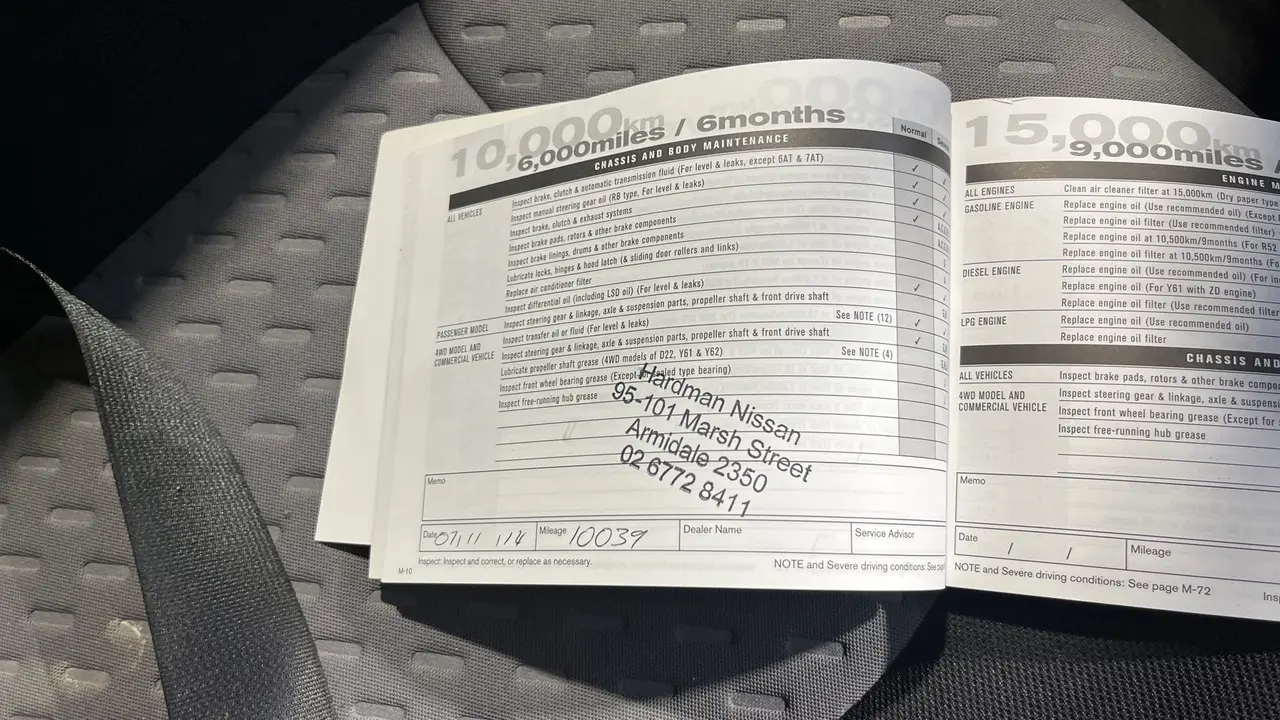 10,000km
6,000miles / 6months
CHASSIS AND BODY MAINTENANCE
Normal
ALL VEHICLES
Inspect brake, clutch & automatic transmission fluid (For level & leaks, except 6AT & 7AT)
Inspect manual steering gear oil (RB type, For level & leaks)
Inspect brake, clutch & exhaust systems
Inspect brake pads, rotors & other brake components
Inspect brake linings, drums & other brake components
Lubricate locks, hinges & hood latch (& sliding door rollers and links)
Replace air conditioner filter
Inspect differential oil (including LSD oil) (For level & leaks)
PASSENGER MODEL
Inspect steering gear & linkage, axle & suspension parts, propeller shaft & front drive shaft
4WD MODEL AND
COMMERCIAL VEHICLE
Inspect transfer oil or fluid (For level & leaks)
See NOTE (12)
Inspect steering gear & linkage, axle & suspension parts, propeller shaft & front drive shaft
Lubricate propeller shaft grease (4WD models of D22, Y61 & Y62)
See NOTE (4)
Inspect front wheel bearing grease (Except for sealed type bearing)
Inspect free-running hub grease
Hardman Nissan
95-101 Marsh Street
Armidale 2350
02 6772 8411
Memo
Date 07/11/14
Mileage 10039
Dealer Name
Service Advisor
Inspect: Inspect and correct, or replace as necessary.
NOTE and Severe driving conditions: See
M-10
15,000km
9,000miles /
ENGINE
ALL ENGINES
Clean air cleaner filter at 15,000km (Dry paper type
GASOLINE ENGINE
Replace engine oil (Use recommended oil) (Except
Replace engine oil filter (Use recommended filter)
Replace engine oil at 10,500km/9months (For R52
Replace engine oil filter at 10,500km/9months (Fo
DIESEL ENGINE
Replace engine oil (Use recommended oil) (For
Replace engine oil (For Y61 with ZD engine)
Replace engine oil filter (Use recommended filter
LPG ENGINE
Replace engine oil (Use recommended oil)
Replace engine oil filter
CHASSIS AND
ALL VEHICLES
Inspect brake pads, rotors & other brake compo
4WD MODEL AND
COMMERCIAL VEHICLE
Inspect steering gear & linkage, axle & suspens
Inspect front wheel bearing grease (Except for
Inspect free-running hub grease
Memo
Date / /
Mileage
NOTE and Severe driving conditions: See page M-72
Ins